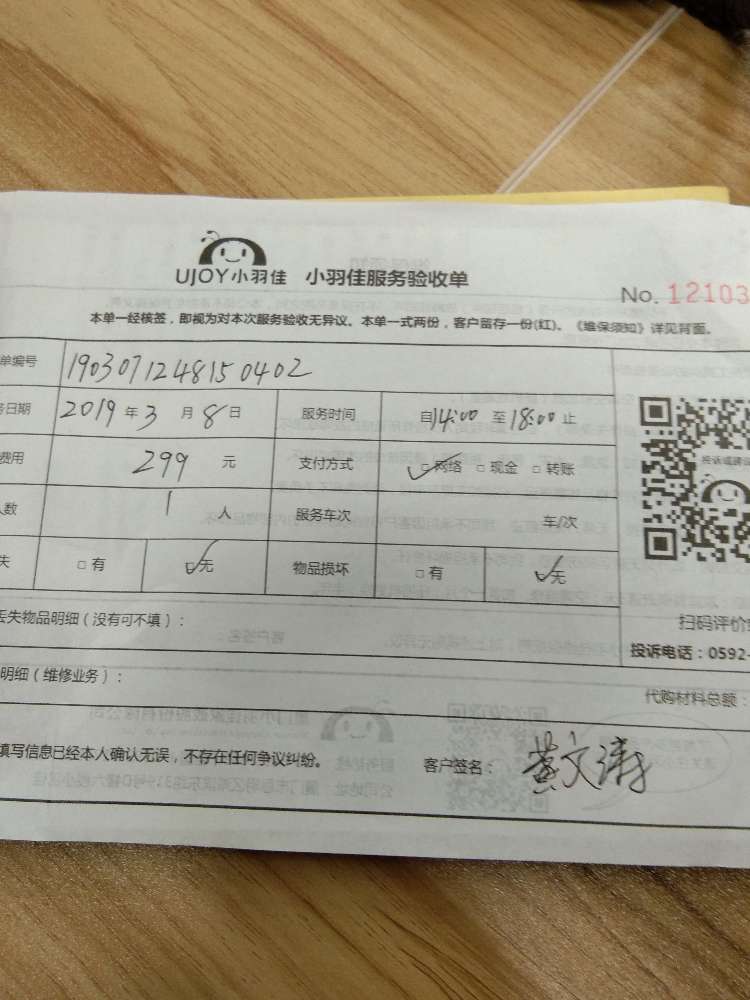 UJOY小羽佳 小羽佳服务验收单
No. 12103
本单一经核签，即视为对本次服务验收无异议。本单一式两份，客户留存一份(红)。《维保须知》详见背面。
单编号 190307124815 0402
日期 2019年3月8日 服务时间 自14:00至18:00止
费用 299 元 支付方式 ☑网络 □现金 □转账
人数 1 人 服务车次 车/次
失 □有 ☑无 物品损坏 □有 ☑无
丢失物品明细（没有可不填）：
扫码评价
投诉电话：0592-
明细（维修业务）：
代购材料总额：
填写信息已经本人确认无误，不存在任何争议纠纷。
客户签名：黄文涛